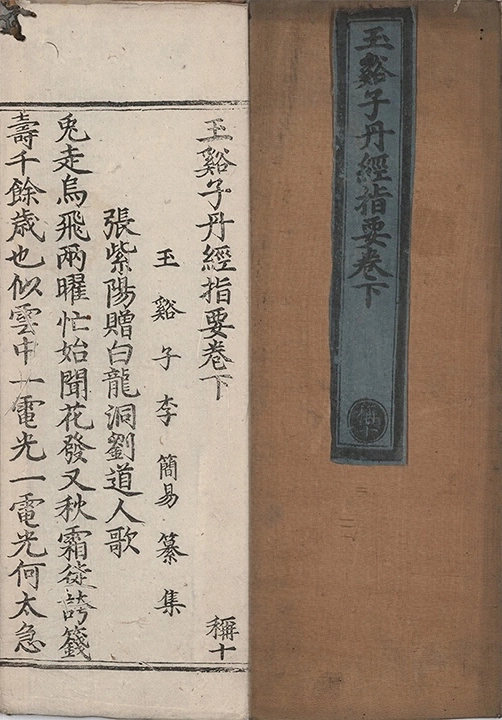 玉谿子丹經指要卷下
稱十
玉谿子丹經指要卷下
稱十
玉谿子李簡易纂集
張紫陽贈白龍洞劉道人歌
兎走烏飛兩曜忙始聞花發又秋霜徒誇籛
壽千餘歲也似雲中一電光一電光何太急